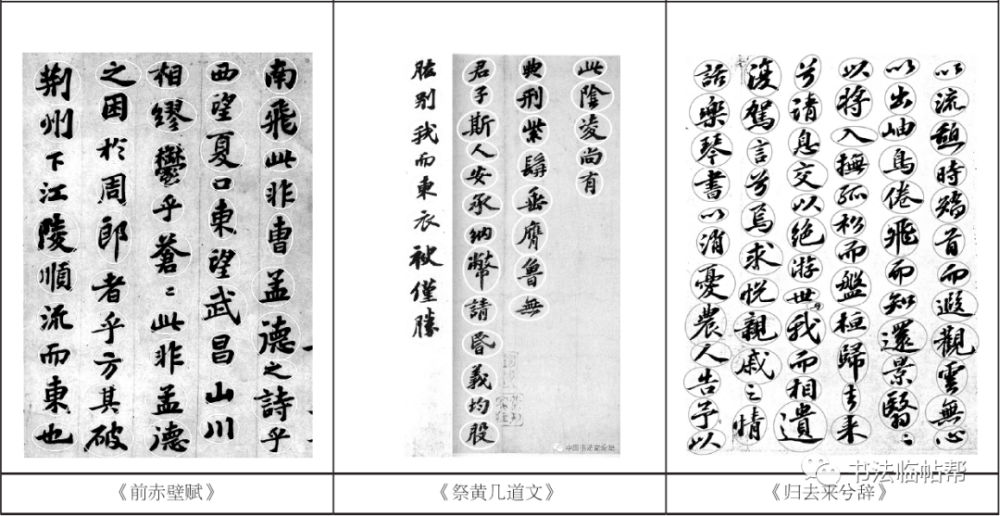 南飛此非曹孟德之詩乎
西望夏口東望武昌山川
相繆鬱乎蒼〻此非孟德
之困於周郎者乎方其破
荊州下江陵順流而東也
此陰凌尚有
典刑紫髯垂膺魯無
君子斯人安承納幣請昏義均股
肱別我而東衣袂僅勝
以流憩時矯首而遐觀雲無心
以出岫鳥倦飛而知還景翳〻
以將入撫孤松而盤桓歸去來
兮請息交以絕游世我而相遺
復駕言兮焉求悅親戚之情
話樂琴書以消憂農人告予以
《前赤壁赋》
《祭黄几道文》
《归去来兮辞》
书法临帖帮